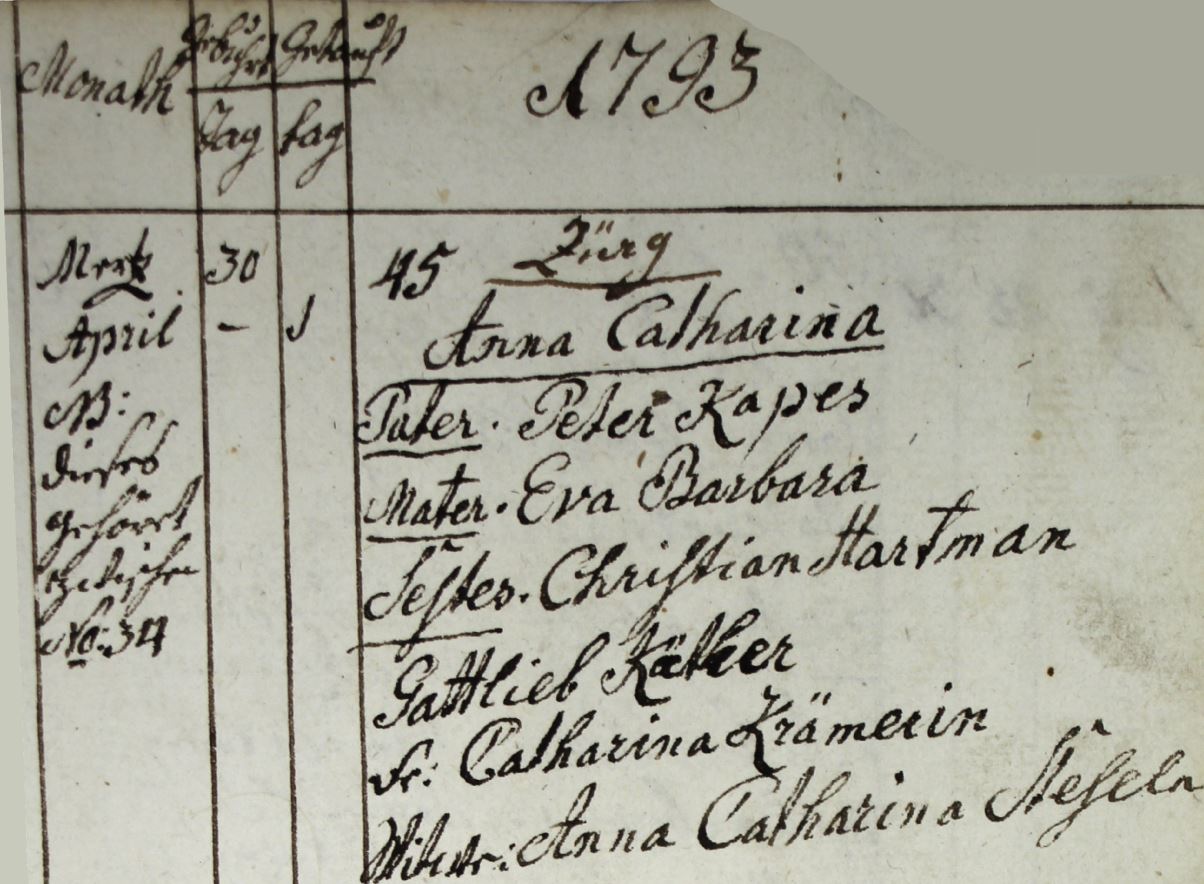 Monath Gebuhrt Getauft 1793
Tag tag
Mertz 30 45 Zürg
April - 1 Anna Catharina
NB: Pater. Peter Kapes
dieses Mater. Eva Barbara
gehöret Testes. Christian Hartman
zwischen
No: 34 Gottlieb Käther
Fr: Catharina Krämerin
Anna Catharina